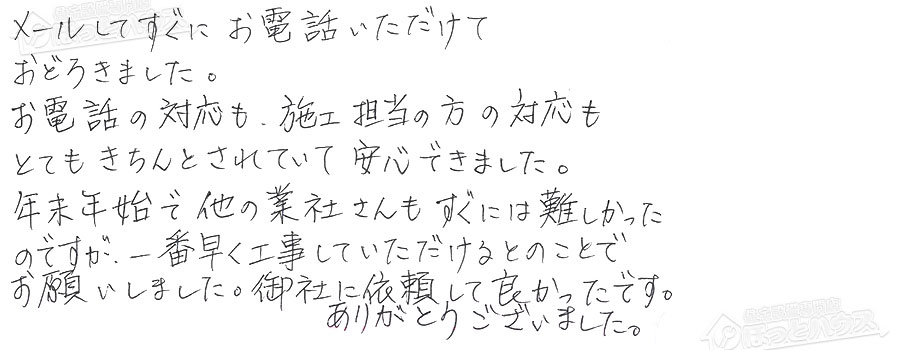 メールしてすぐに お電話いただけて
おどろきました。
お電話の対応も、施工担当の方の対応も
とてもきちんとされていて安心できました。
年末年始で他の業社さんもすぐには難しかった
のですが、一番早く工事していただけるとのことで
お願いしました。御社に依頼して良かったです。
ありがとうございました。